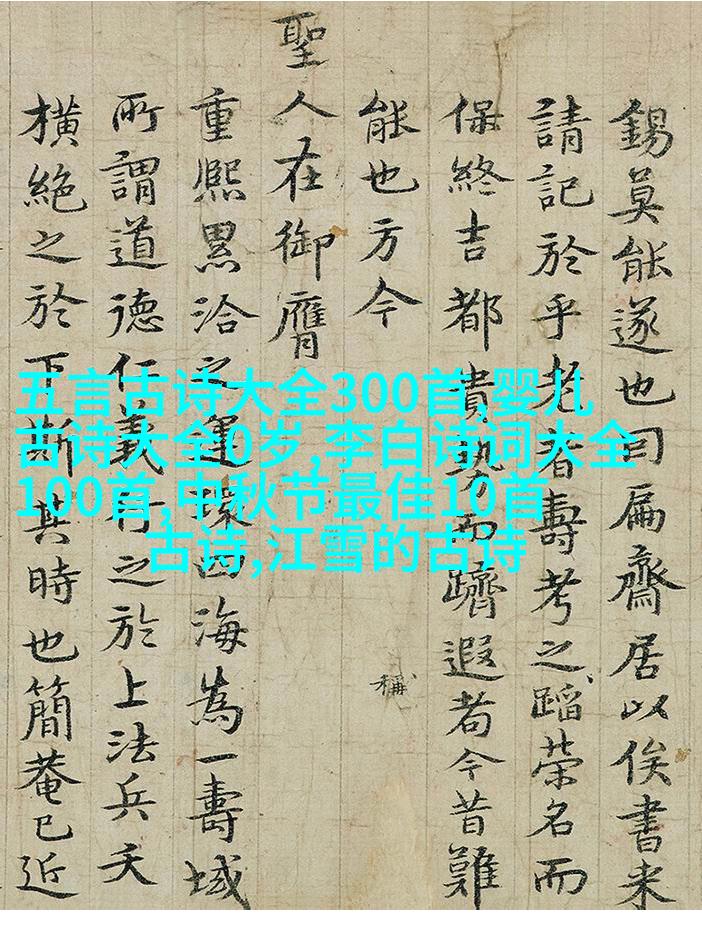 錫莫能遂也曰扁齋居以俟書来
請記於乎老者壽考之蹈榮名而
保終吉都貴勢而躋遐耇今昔難
能也方今
稱
聖人在御膺
重熙累洽之運撫四海為一壽域
所謂道德仁義行之於上法兵夭
橫絶之於下斯其時也簡菴已近
五言古诗大全300首,婴儿
古诗大全0岁,李白诗词大全
100首,中秋节最佳10首
古诗,江雪的古诗